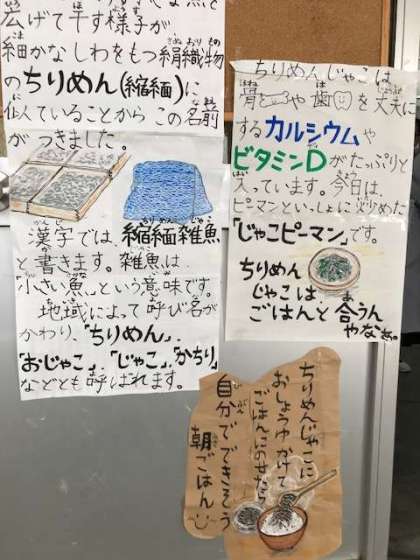 広げて干す様子が
細かなしわをもつ絹織物
のちりめん(縮緬)に
似ていることからこの名前
がつきました。
漢字では、縮緬雑魚
と書きます。雑魚は、
「小さい魚」という意味です。
地域によって呼び名が
かわり、「ちりめん」、
「おじゃこ」、「じゃこ」、「かちり」
などとも呼ばれます。
ちりめんじゃこは、
骨や歯を丈夫に
するカルシウムや
ビタミンDがたっぷりと
入っています。今日は、
ピーマンといっしょに炒めた
「じゃこピーマン」です。
ちりめん
じゃこは
ごはんと合うん
やなぁ。
ちりめんじゃこに
おしょうゆかけて
ごはんにのせたら
自分でできそう
朝ごはん